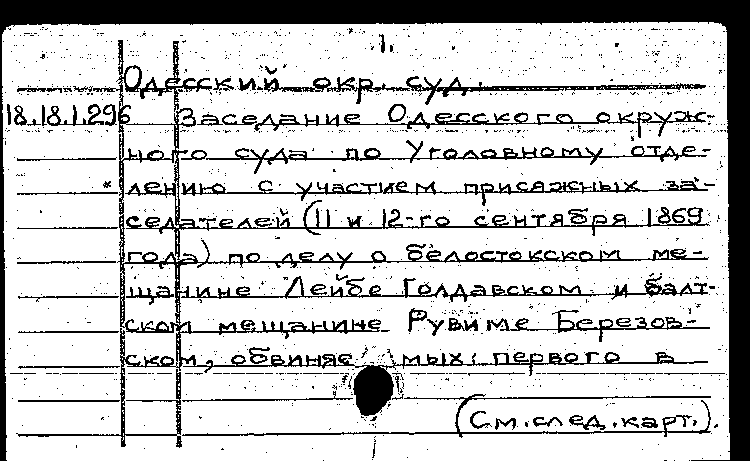 1.
Одесский окр. суд.
18.18.1.296 Заседание Одесского окруж-
ного суда по Уголовному отде-
* лению с участием присяжных за-
седателей (11 и 12-го сентября 1869
года) по делу о белостокском ме-
щанине Лейбе Голдавском и балт-
ском мещанине Рувиме Березов-
ском, обвиняемых: первого в
(См. след. карт.).